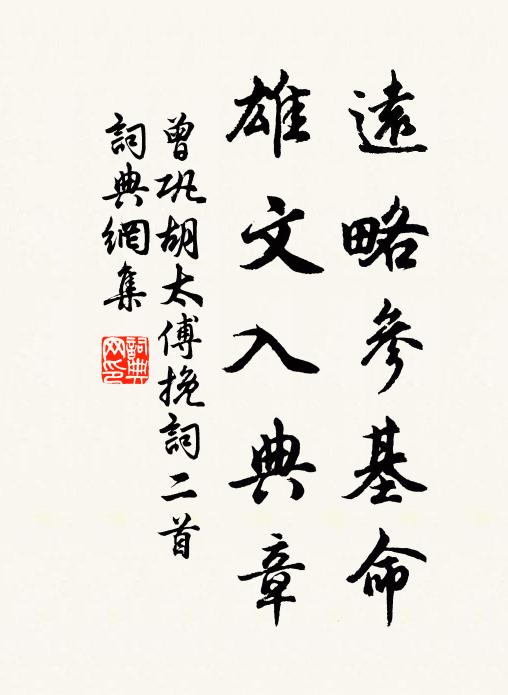 遠略參基命
雄文入典章
曾巩胡太傅挽詞二首
詞典網集
詞典網印